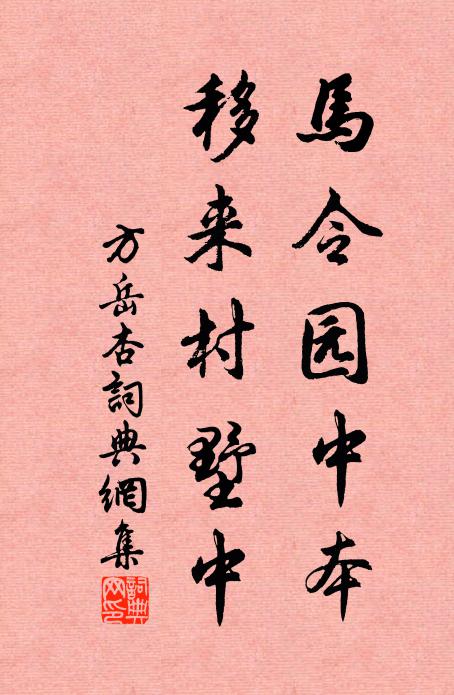 馬令园中本
移来村墅中
方岳杏詞典網集
詞典网印